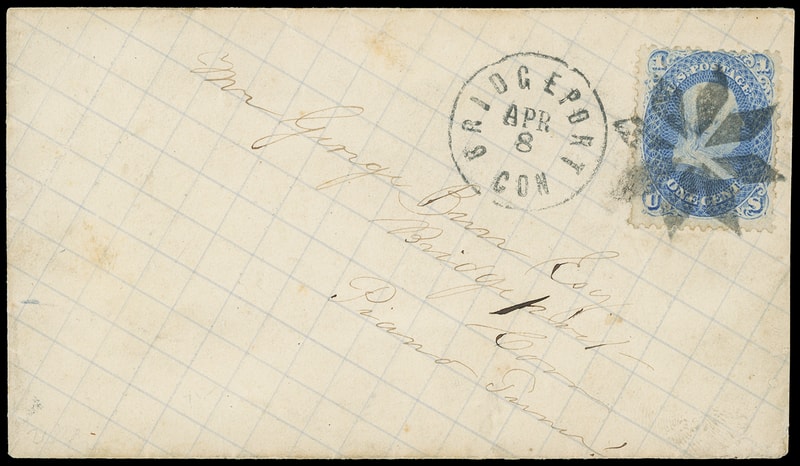 BRIDGEPORT
APR
8
CON
U.S. POSTAGE
1 1
ONE CENT
U S
Mr George Bunn Esqr
Bridgeport
Conn
Piano Tuner